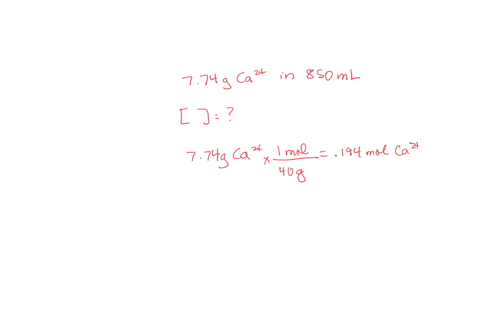 7.74g Ca²⁺ in 850mL
[ ] = ?
7.74g Ca²⁺ × 1 mol / 40g = .194 mol Ca²⁺